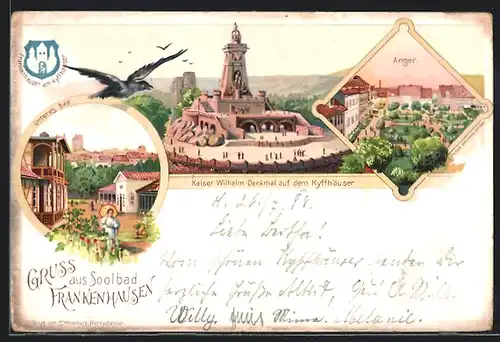 Frankenhausen am Kyffhäuser
Unteres Bad
Anger.
Kaiser Wilhelm-Denkmal auf dem Kyffhäuser
Gruss
aus Soolbad
Frankenhausen
Liebe Bertha!
Vom schönen Kyffhäuser senden Dir
herzliche Grüße
Willy Minna. Melanie.